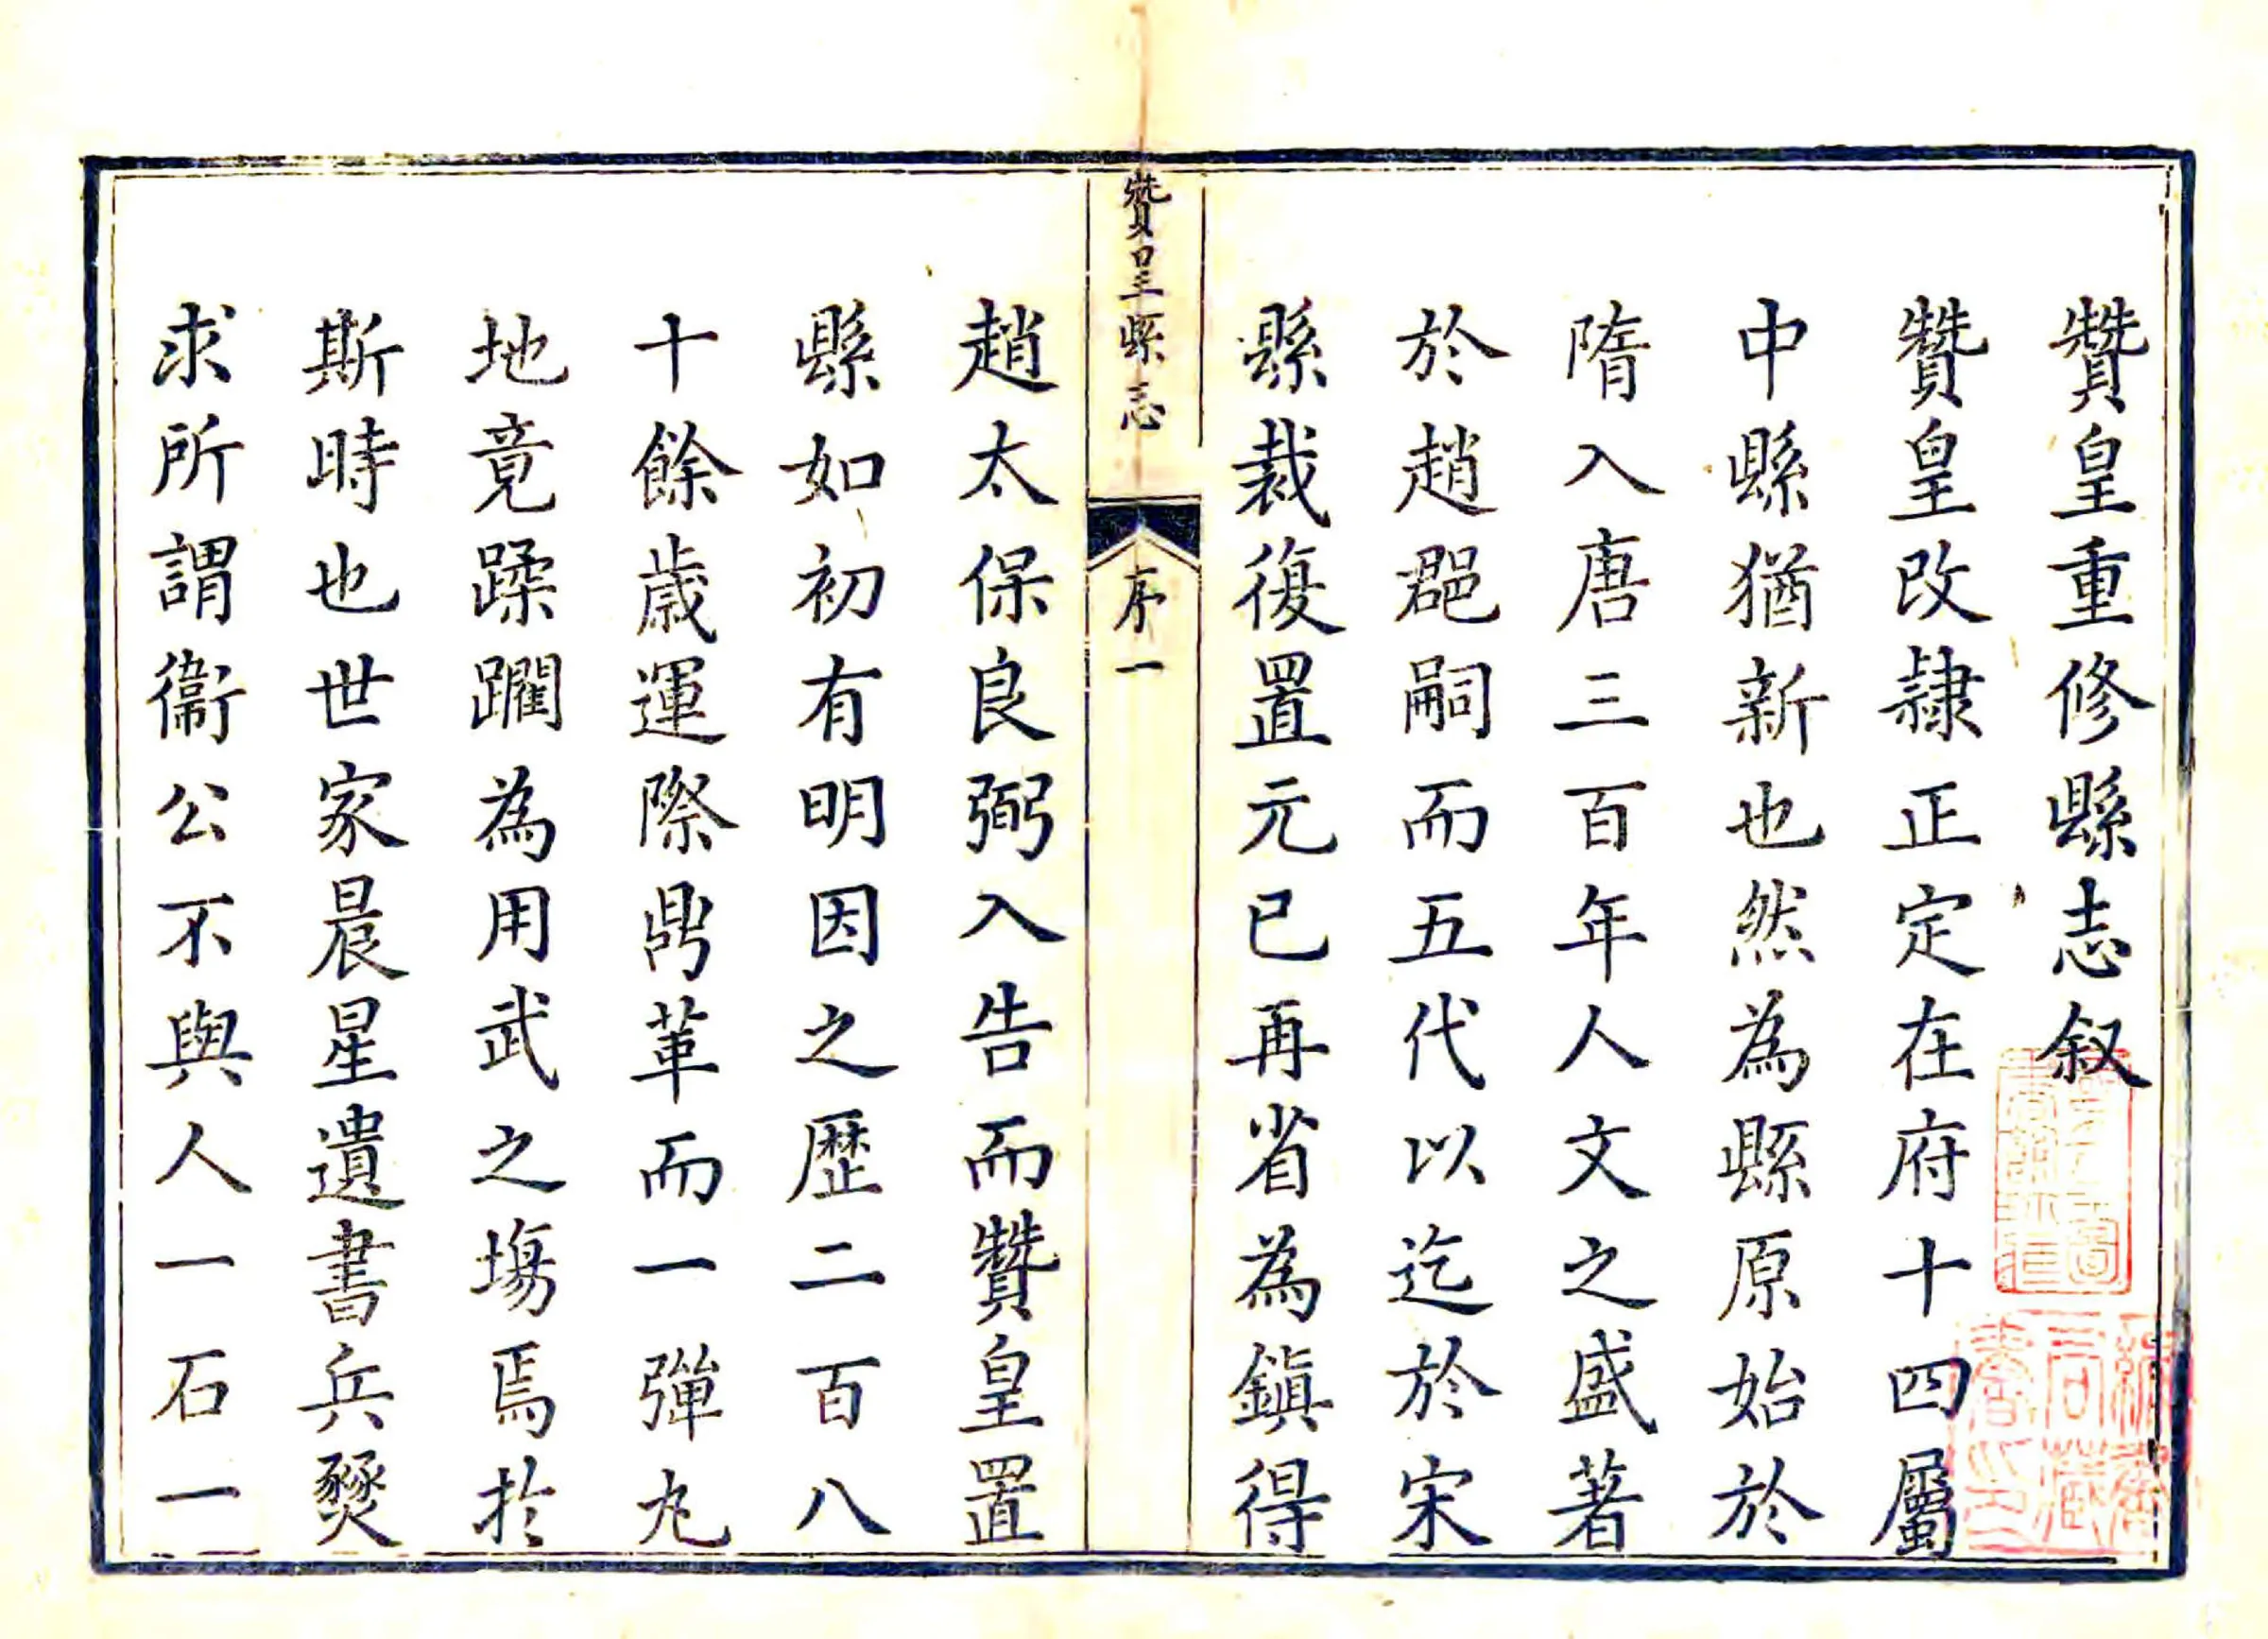 贊皇重修縣志叙
贊皇改隷正定在府十四屬
中縣猶新也然為縣原始於
隋入唐三百年人文之盛著
於趙郡嗣而五代以迄於宋
縣裁復置元已再省為鎮得
贊皇縣志
序一
趙太保良弼入告而贊皇置
縣如初有明因之歷二百八
十餘歲運際鼎革而一彈丸
地竟蹂躪為用武之塲焉於
斯時也世家晨星遺書兵燹
求所謂衞公不與人一石一